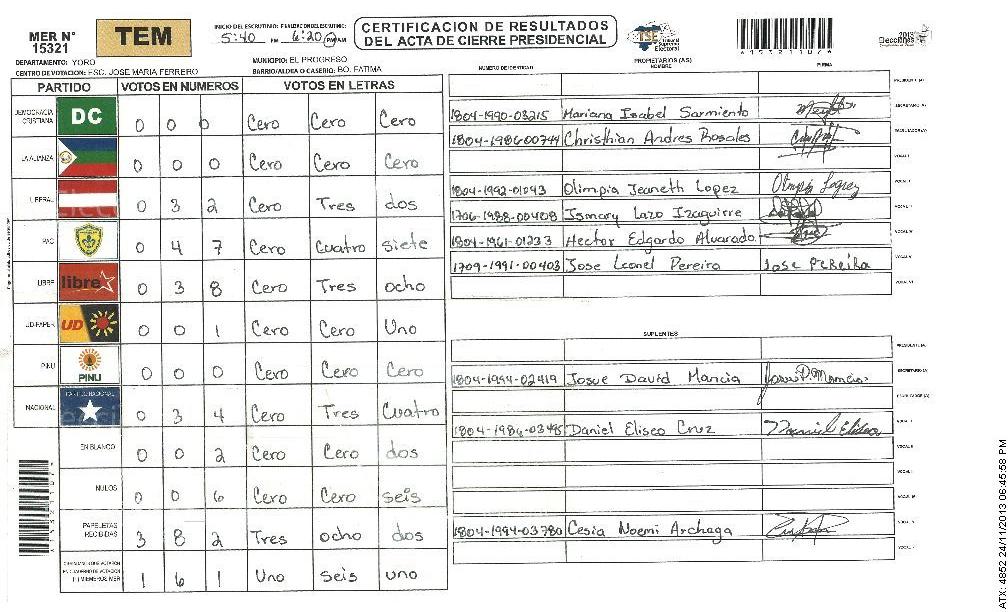 MER N° 15321
TEM
INICIO DEL ESCRUTINIO: FINALIZACION DEL ESCRUTINIO:
5:40 PM 6:20 PM AM
CERTIFICACION DE RESULTADOS
DEL ACTA DE CIERRE PRESIDENCIAL
TSE Tribunal Supremo Electoral
Elecciones 2013
DEPARTAMENTO: YORO
MUNICIPIO: EL PROGRESO
CENTRO DE VOTACION: ESC. JOSE MARIA FERREIRO
BARRIO/ALDEA O CASERIO: BO. FATIMA
PARTIDO VOTOS EN NUMEROS VOTOS EN LETRAS
DEMOCRACIA CRISTIANA DC 0 0 0 Cero Cero Cero
LA ALIANZA 0 0 0 Cero Cero Cero
LIBERAL 0 3 2 Cero Tres dos
PAC 0 4 7 Cero Cuatro siete
LIBRE libre 0 3 8 Cero Tres ocho
UD-FAPER UD 0 0 1 Cero Cero Uno
PINU PINU 0 0 0 Cero Cero Cero
NACIONAL PARTIDO NACIONAL 0 3 4 Cero Tres Cuatro
EN BLANCO 0 0 2 Cero Cero dos
NULOS 0 0 6 Cero Cero seis
PAPELETAS RECIBIDAS 3 8 2 Tres ocho dos
1 6 1 Uno seis uno
NUMERO DE IDENTIDAD PROPIETARIOS (AS) NOMBRE FIRMA
PRESIDENTE (A)
1804-1990-03215 Mariana Isabel Sarmiento SECRETARIO (A)
1804-1986-00744 Christhian Andres Rosales ESCRUTADOR (A)
VOCAL I
1804-1992-01043 Olimpia Jeaneth Lopez Olimpia Lopez
1706-1988-00408 Ismary Lazo Izaguirre
1804-1961-01233 Hector Edgardo Alvarado
1709-1991-00403 Jose Leonel Pereira Jose Pereira
SUPLENTES
PRESIDENTE (A)
1804-1994-02419 Josue David Mancia SECRETARIO (A)
ESCRUTADOR (A)
1804-1986-03495 Daniel Eliseo Cruz
1804-1994-03780 Cesia Noemi Archaga
ATX: 4852 24/11/2013 06:45:58 PM